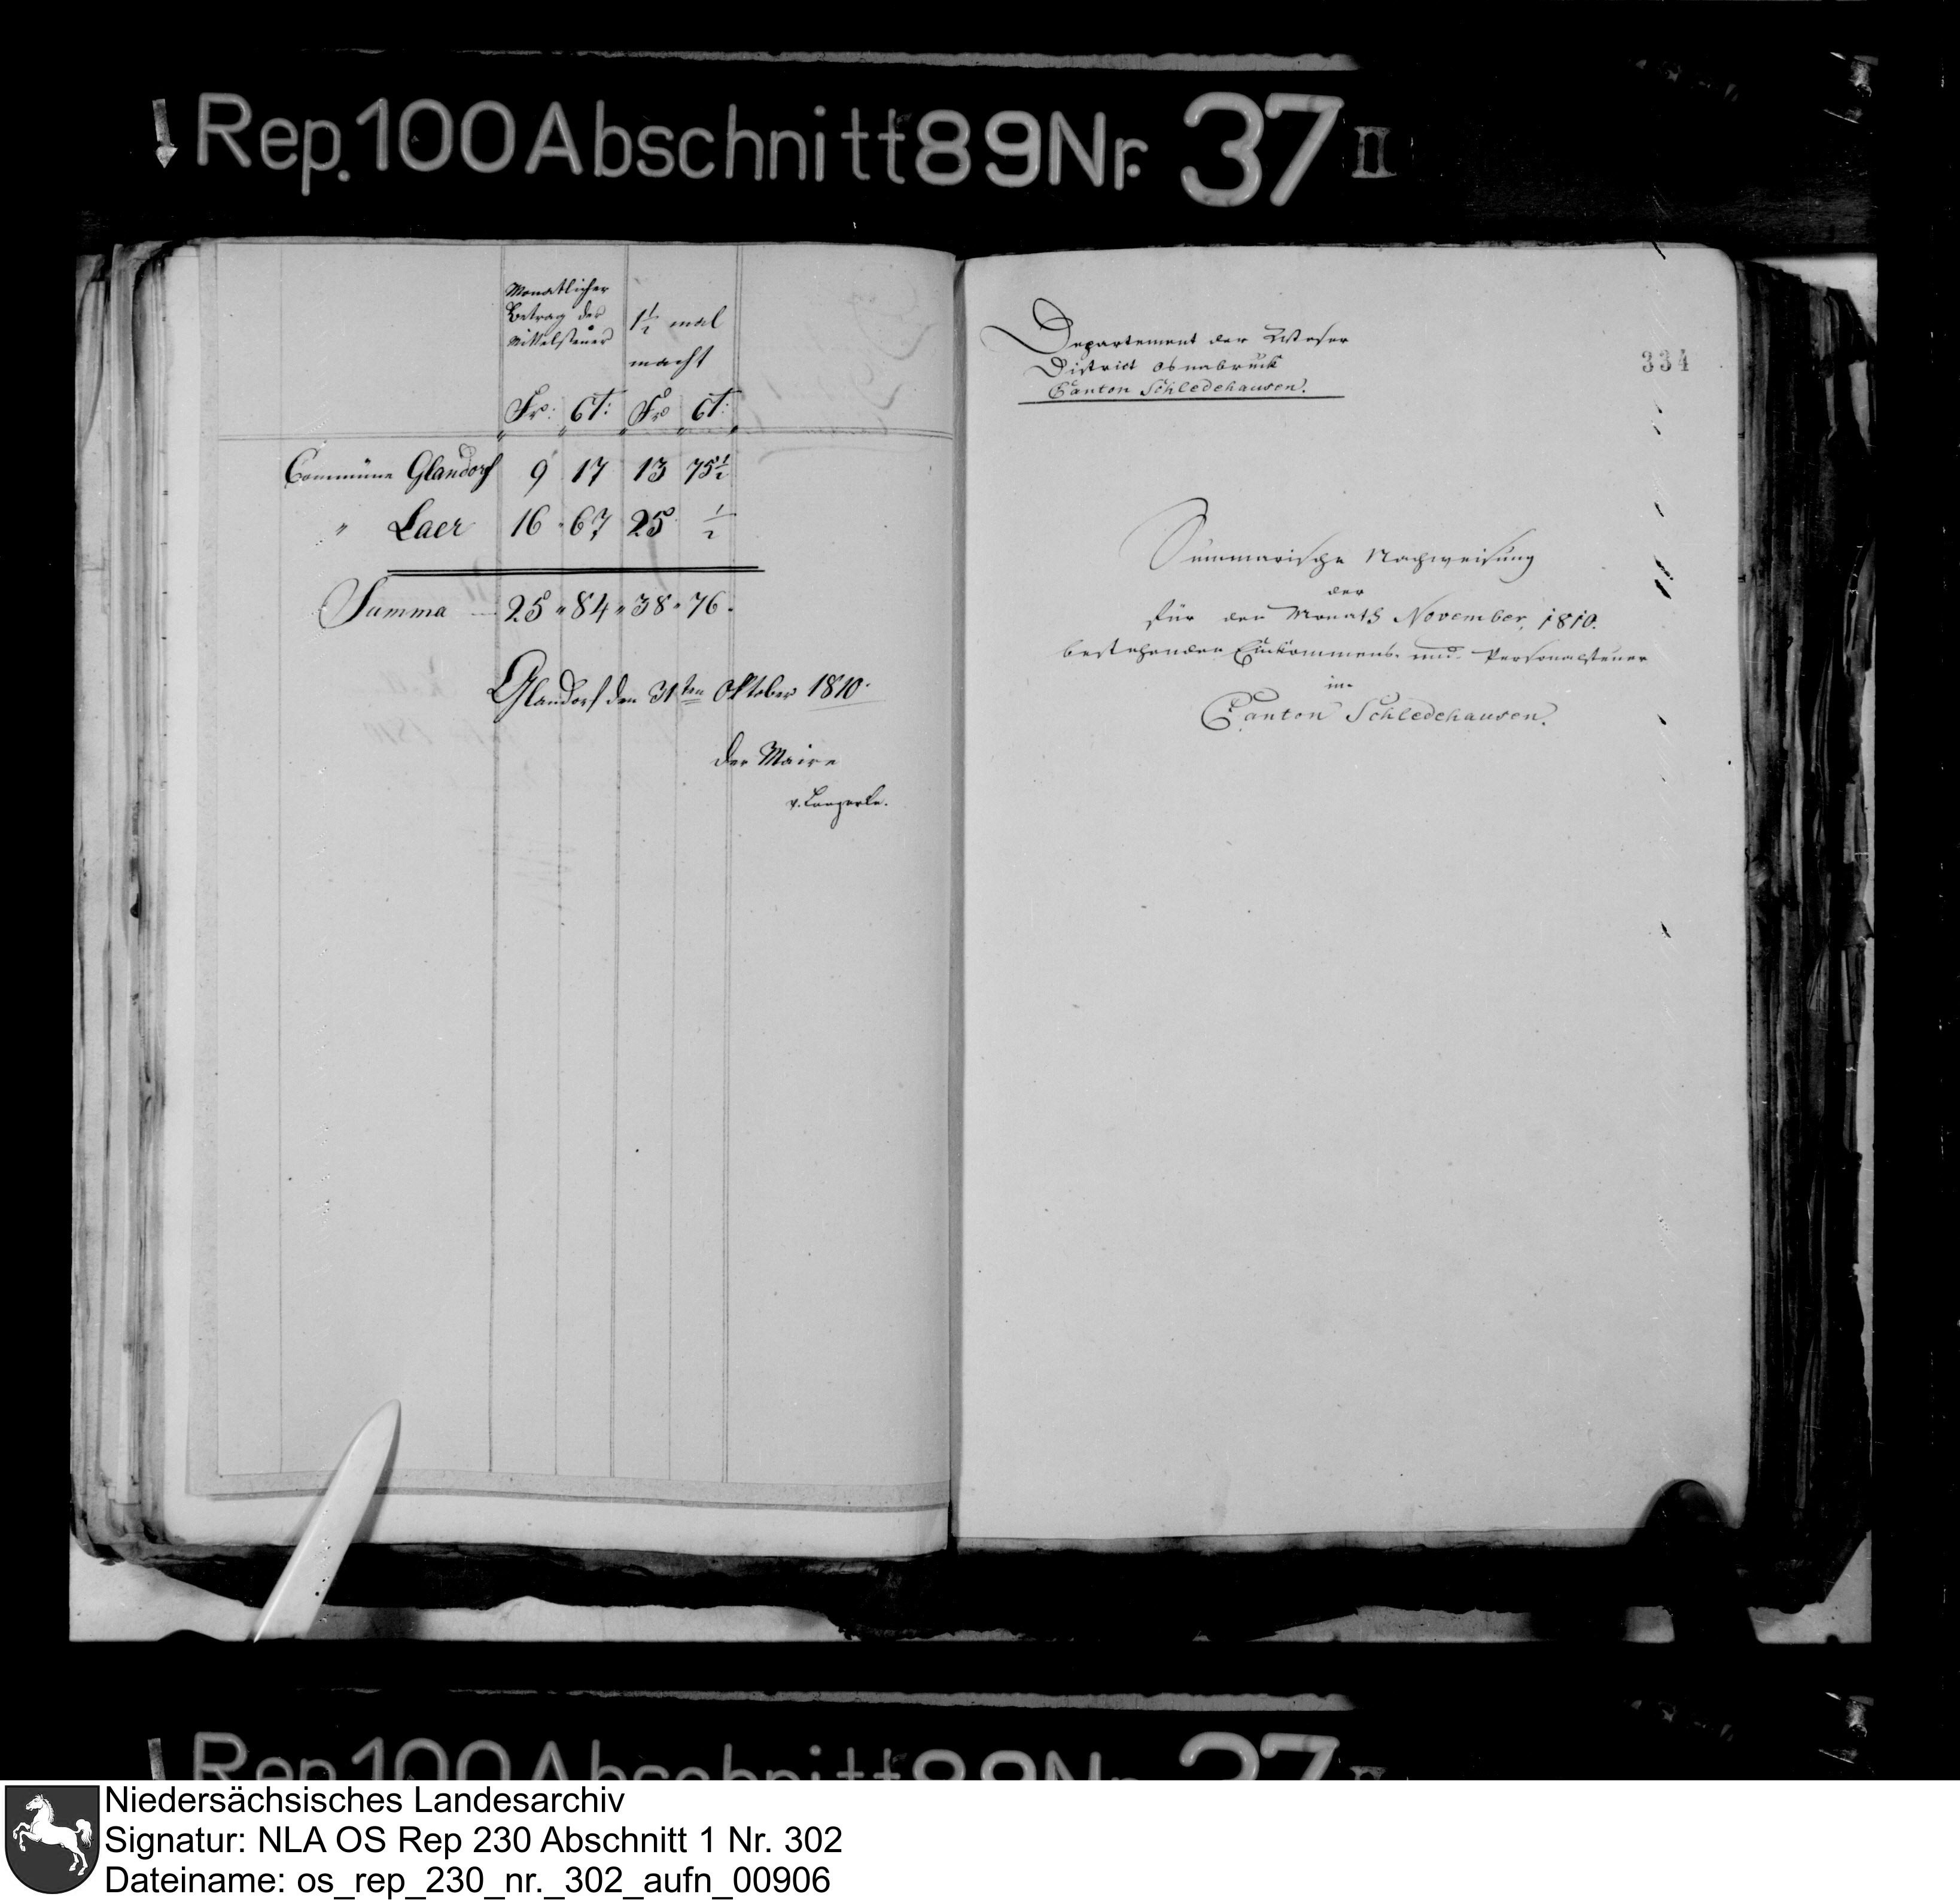 Rep. 100 Abschnitt 89 Nr. 37 II
Monatlicher
Betrag der
Mittelsteuer
1 1/2 mal
macht
Fr: Ct: Fr Ct:
Commüne Glandorf 9 17 13 75 1/2
" Laer 16 67 25 1/2
Summa 25 " 84 " 38 " 76.
Glandorf den 31ten Oktober 1810.
der Maire
334
Departement der Weser
District Osnabrück
Canton Schledehausen.
Summarische Nachweisung
der
für den Monath November, 1810.
bestehenden Einkommens- und Personalsteuer
im
Canton Schledehausen.
Rep. 100 Abschnitt 89 Nr. 37 II
Niedersächsisches Landesarchiv
Signatur: NLA OS Rep 230 Abschnitt 1 Nr. 302
Dateiname: os_rep_230_nr._302_aufn_00906